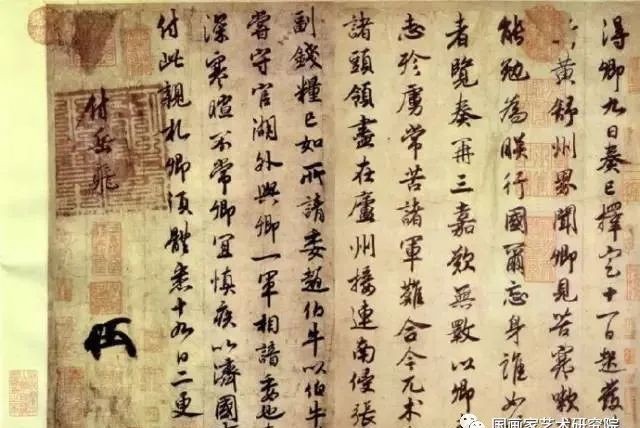 得卿九日奏已擇定十一日起發
黃舒州界聞卿見苦寒嗽
能勉為朕行國爾忘身誰如
者覽奏再三嘉歎無斁以卿
志殄虜常苦諸軍難合今兀术
諸頭領盡在廬州接連南侵張
副錢糧已如所請委趙伯牛以伯牛
嘗守官湖外與卿一軍相諳委也
深寒暄不常卿宜慎疾以濟國
付此親札卿須體悉十九日二更
付岳飛
国画家艺术研究院